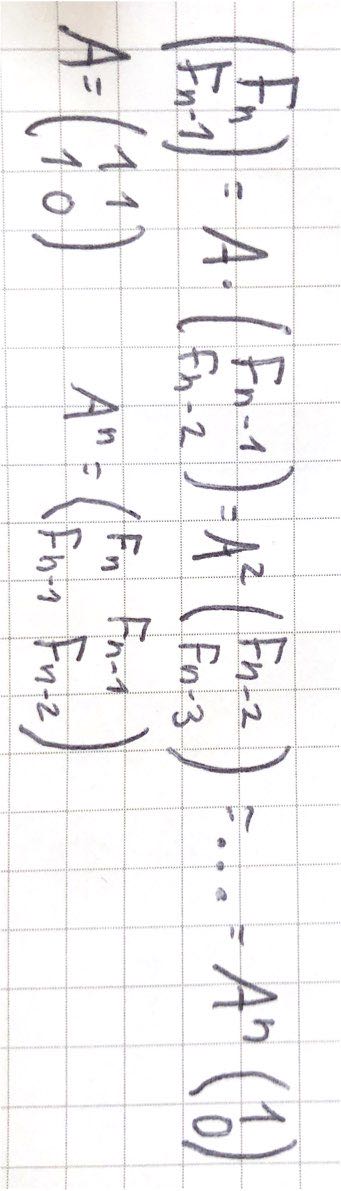 (F_n / F_{n-1}) = A · (F_{n-1} / F_{n-2}) = A² (F_{n-2} / F_{n-3}) = .... = Aⁿ (1 / 0)
A = (1 1 / 1 0) Aⁿ = (F_n F_{n-1} / F_{n-1} F_{n-2})